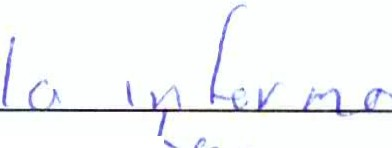 la informa